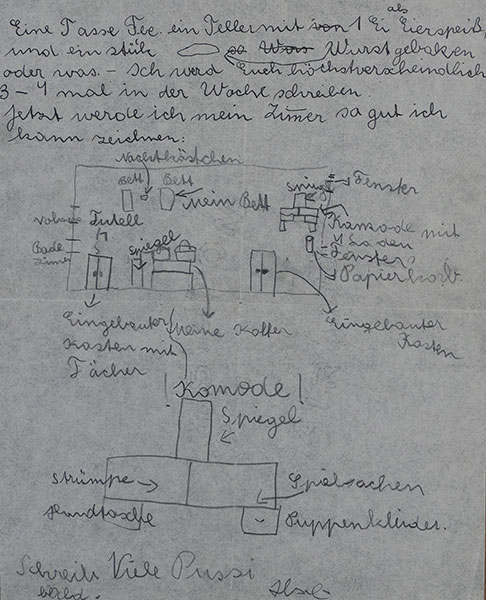 Eine Tasse Tee. ein Teller mit von 1 Ei als Eierspeiß,
und ein stük so Wurst gebaken
oder was. – Ich werd Euch höchstwarscheindlich
3 – 4 mal in der Woche schreiben.
Jetzt werde ich mein Zimer so gut ich
kann zeichnen:
Nachtkästchen
Bett Bett
mein Bett
Spiegel
Fenster
Komode mit
4 Laden
Fenster
Papierkorb
Bade
zimer
Spiegel
Eingebauter
Kasten mit
Fächer
meine Koffer
Eingebauter
Kasten
! Komode !
Spiegel
Strümpe
Spielsachen
Handtasche
Puppenkleider.
Schreib Viele Pussi
bald.